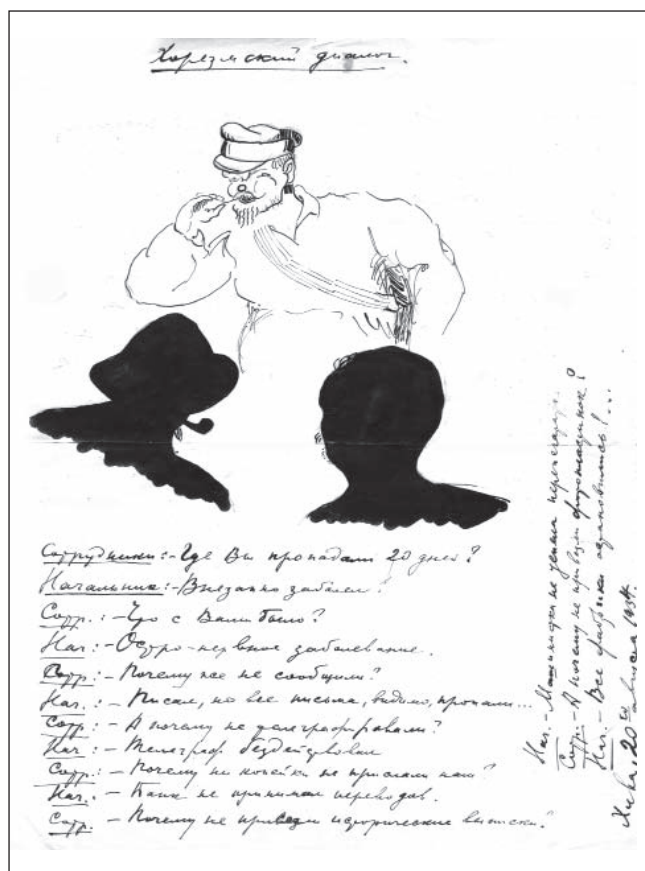 Хорезмский диалог.
Сотрудники: - Где Вы пропадали 20 дней?
Начальник: - Внезапно заболел!
Сотр.: - Что с Вами было?
Нач: - Остро-нервное заболевание.
Сотр: - Почему же не сообщили?
Нач. - Писал, но все письма, видимо, пропали...
Сотр: - А почему не телеграфировали?
Нач: - Телеграф бездействовал
Сотр: - Почему ни копейки не прислали нам?
Нач. - Банк не принимал переводов.
Сотр. - Почему не привезли исторические выписки?
Нач. - Машинистка не успела перепечатать.
Сотр. - А почему не привезли фотопластинок?
Нач. - Все фабрики остановились!...
Хива, 20 августа 1934.